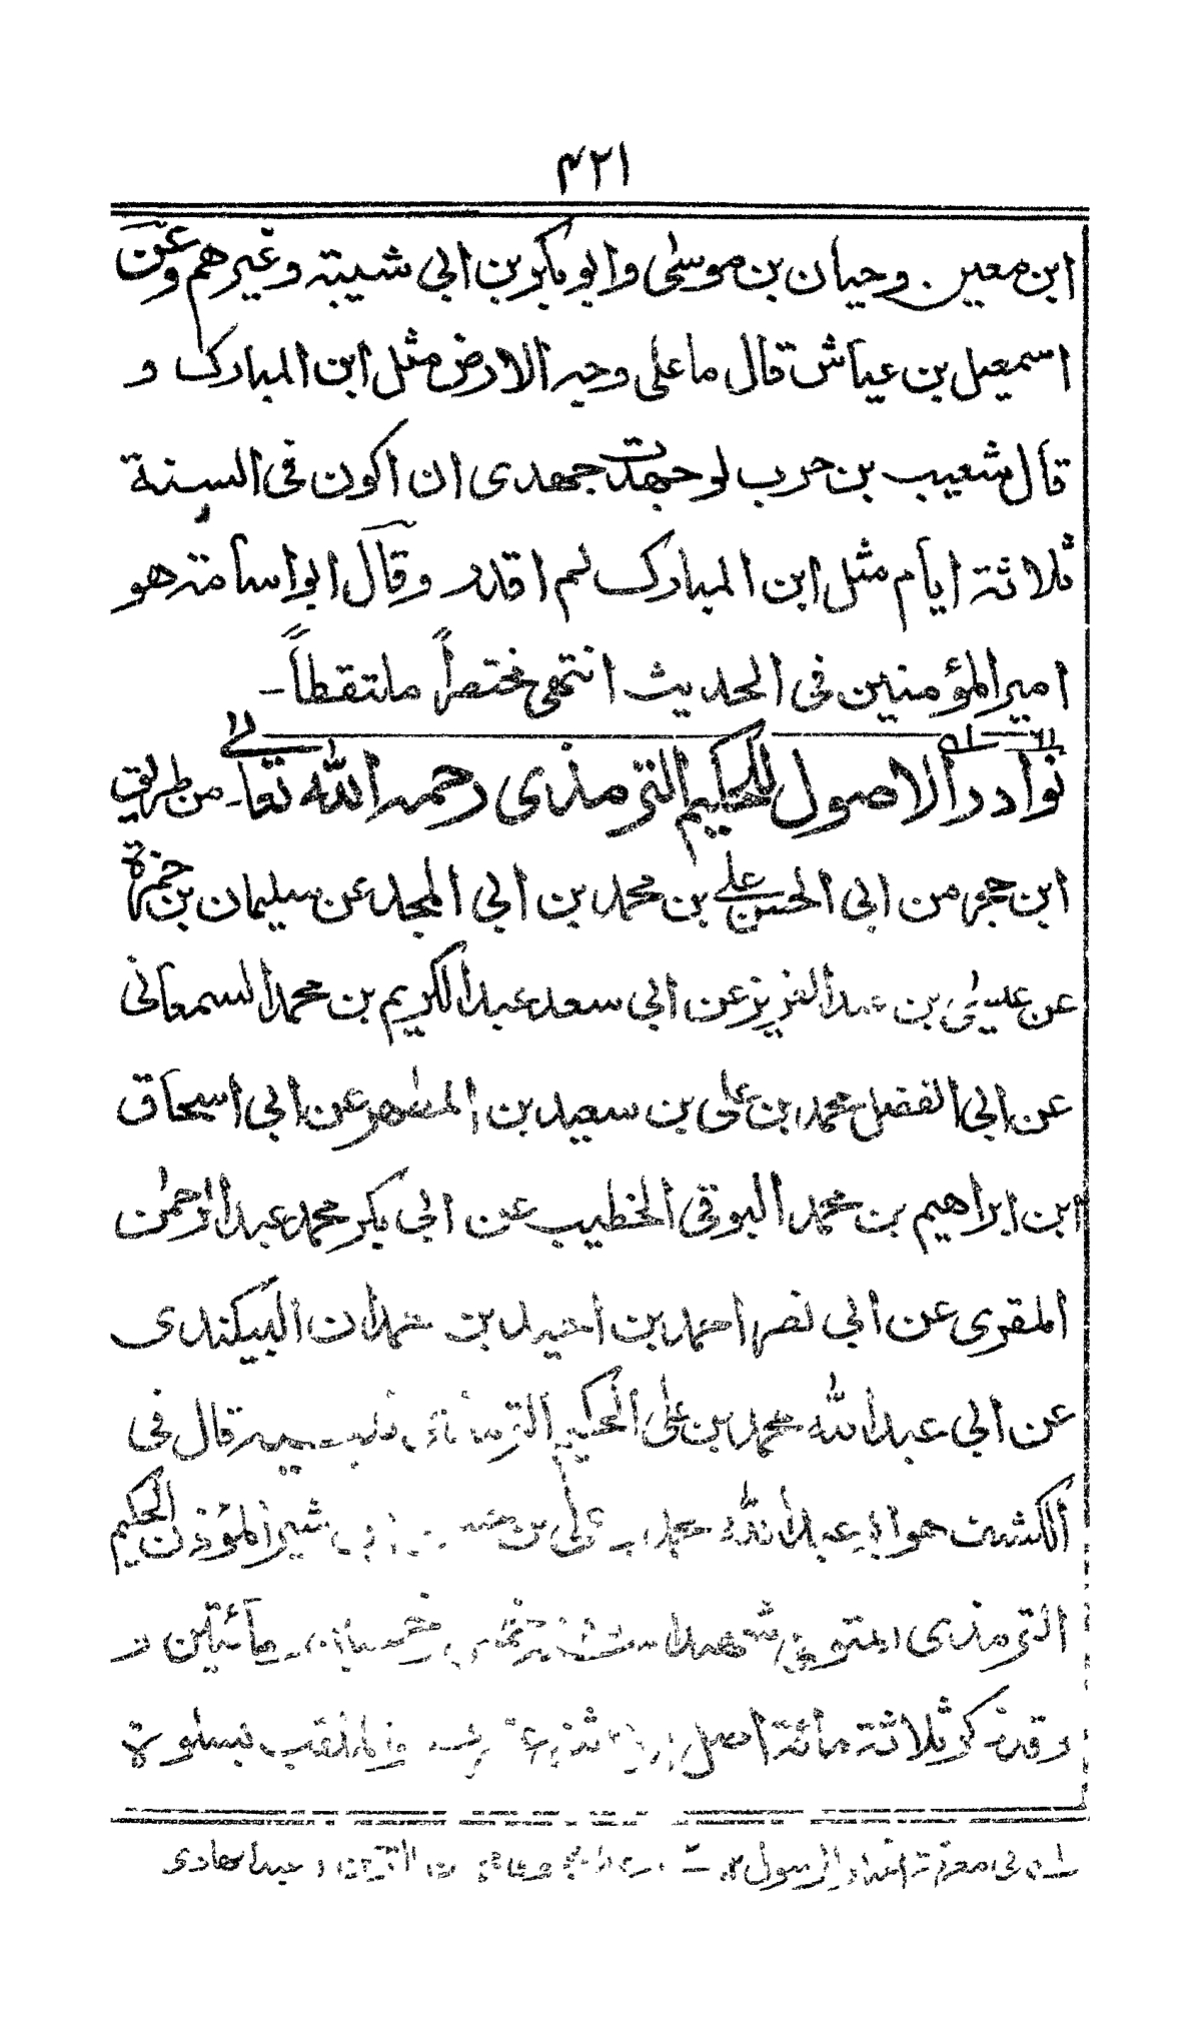 ۴۲۱
ابن معين وحيان بن موسٰى وابو بكر بن ابى شيبة وغيرهم وعن
اسمعيل بن عياش قال ما على وجه الارض مثل ابن المبارك و
قال شعيب بن حرب لوجهدت جهدى ان اكون فى السنة
ثلاثة ايام مثل ابن المبارك لم اقدر وقال ابو اسامة هو
امير المؤمنين فى الحديث انتهى مختصراً ملتقطاً-
نوادر الاصول للحكيم الترمذى رحمه الله تعالى- من طريق
ابن حجر من ابى الحسن على بن محمد بن ابى المجد عن سليمان بن حمزة
عن عيسٰى بن عبد العزيز عن ابى سعد عبد الكريم بن محمد السمعانى
عن ابى الفضل محمد بن على بن سعيد بن المطهر عن ابى اسحاق
ابن ابراهيم بن محمد البوقى الخطيب عن ابى بكر محمد عبد الرحمٰن
المقرى عن ابى نصر احمد بن احيد بن حمدان البيكندى
عن ابى عبد الله محمد بن على الحكيم الترمذى قال فى
الكشف هو ابو عبد الله محمد بن على بن شير المؤذن الحكيم
الترمذى المتوفى شهيدا سنة خمس خمسين ومأئتين و
وقد ذكر ثلاثة مائة اصل الملقب بسلوة
فى معرفة الرسول عبد الهادى